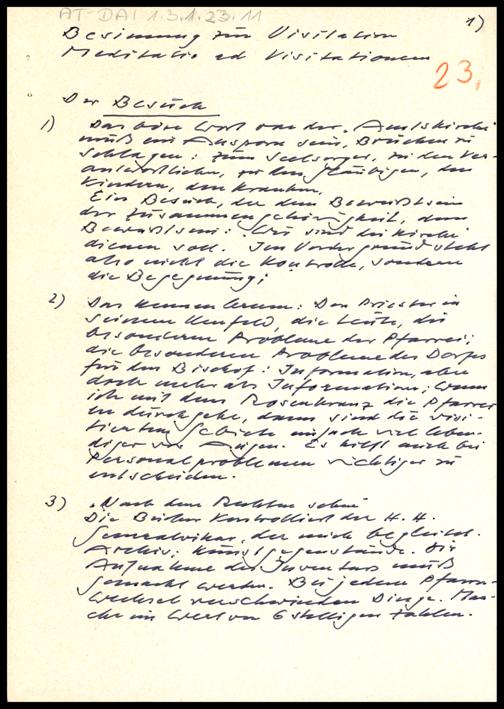 AT-DAI 1.3.1.23.11
1)
Besinnung zur Visitation
Meditatio ad Visitationem
23.
Der Besuch
1) Das böse Wort von der "Amtskirche
muß ein Ansporn sein, Brücken zu
schlagen: zum Seelsorger, zu den Ver-
antwortlichen, zu den Gläubigen, den
Kindern, den Kranken.
Ein Besuch, der dem Bewußtsein
der Zusammengehörigkeit, dem
Bewußtsein: Wir sind die Kirche
dienen soll. Im Vordergrund steht
also nicht die Kontrolle, sondern
die Begegnung;
2) Das Kennenlernen: Den Priester in
seinem Umfeld, die Leute, die
besonderen Probleme der Pfarrei;
die besonderen Probleme des Dorfes
für den Bischof: Information, aber
doch mehr als Information; wenn
ich mit dem Rosenkranz die Pfarreien
durchgehe, dann sind die visi-
tierten Gebiete einfach viel leben-
diger vor Augen. Es hilft auch bei
Personalproblemen richtiger zu
entscheiden.
3) "Nach dem Rechten sehen"
Die Bücher kontrolliert der H. H.
Generalvikar, der mich begleitet.
Archiv; Kunstgegenstände. Die
Aufnahme des Inventars muß
gemacht werden. Bei jedem Pfarr-
wechsel verschwinden Dinge. Man-
che im Wert von 6stelligen Zahlen.